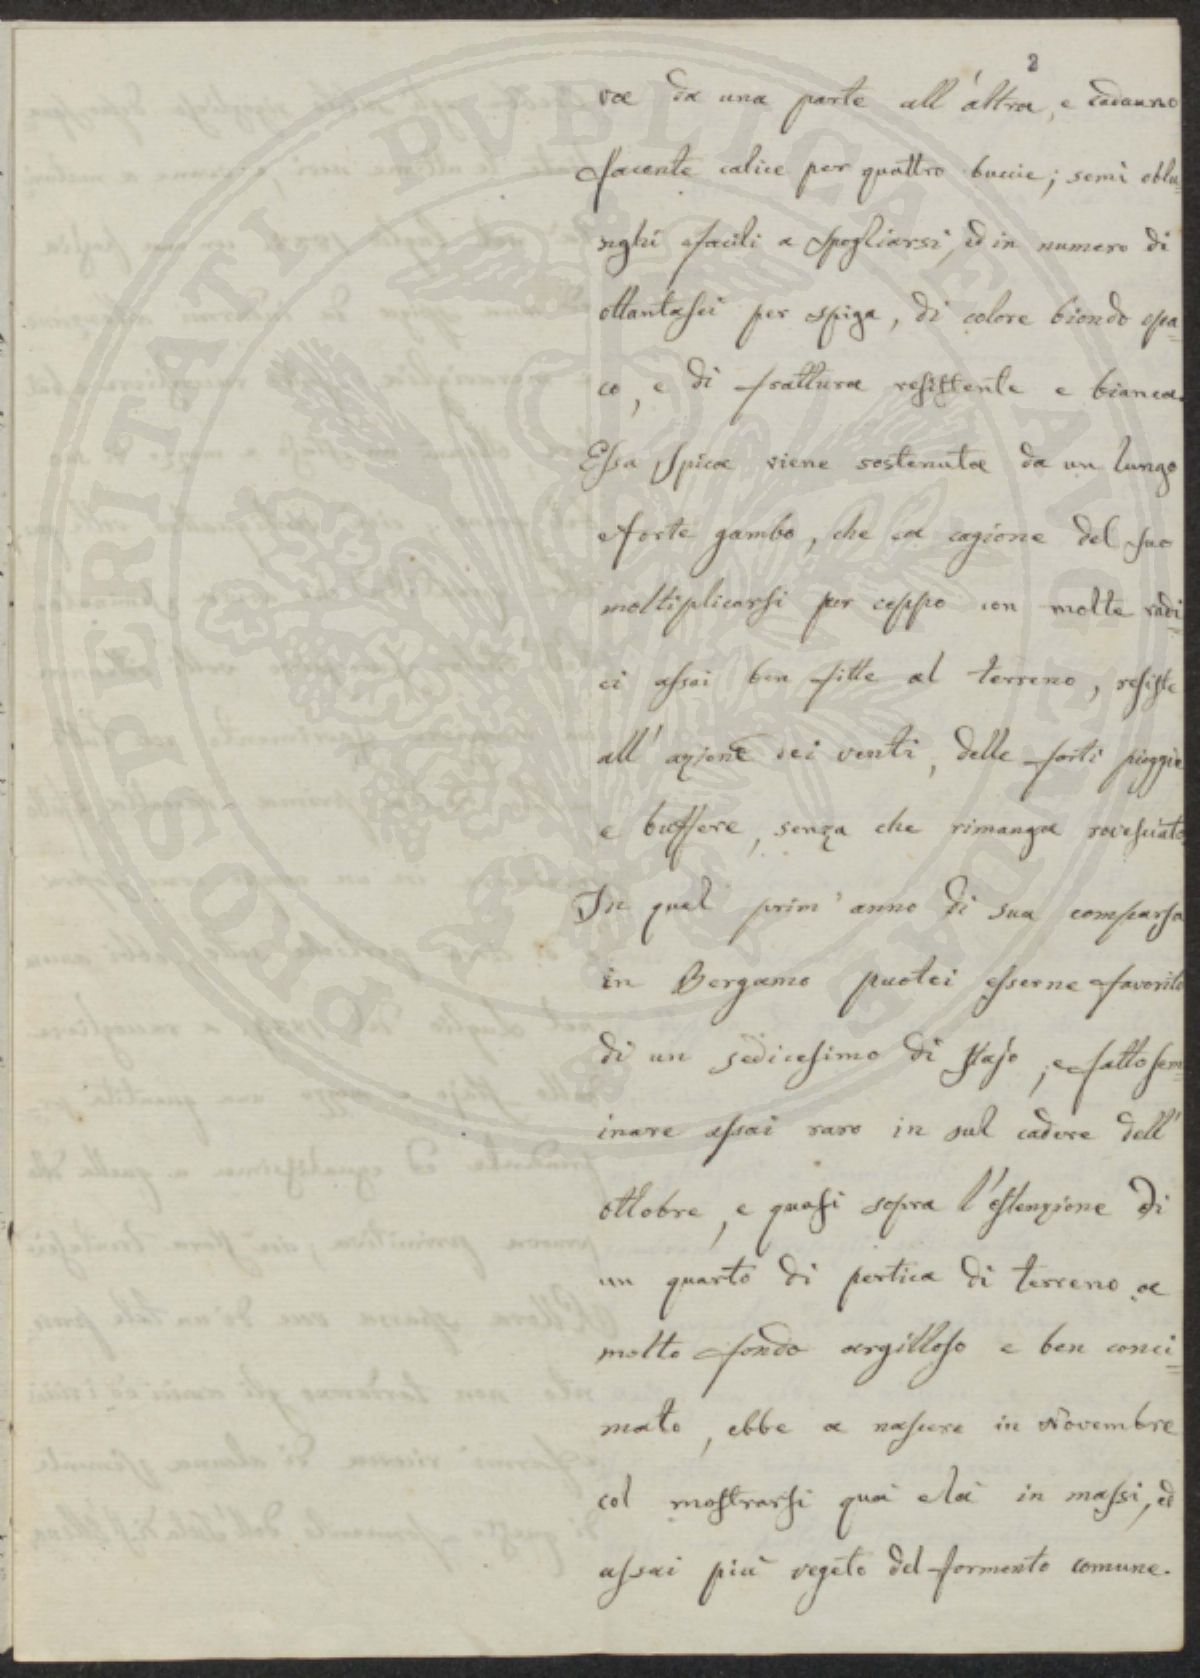 2
va da una parte all'altra, e cadauno
facente calice per quattro buccie; semi oblu-
nghi facili a spogliarsi, ed in numero di
ottantasei per spiga, di colore biondo opa-
co, e di frattura resistente e bianca.
Essa spica viene sostenuta da un lungo
e forte gambo, che a cagione del suo
moltiplicarsi per ceppo con molte radi-
ci assai ben fitte al terreno, resiste
all'azione dei venti, delle forti pioggie
e buffere, senza che rimanga rovesciato
In quel prim'anno di sua comparsa
in Bergamo puotei esserne favorito
di un sedicesimo di stajo, e fatto sem-
inare assai raro in sul cadere dell'
ottobre, e quasi sopra l'estenzione di
un quarto di pertica di terreno a
molto fondo argilloso e ben conci-
mato, ebbe a nascere in Novembre
col mostrarsi quà e là in massi, ed
assai più vegeto del formento comune.
PROSPERITATI PVBLICAE AVGENDAE